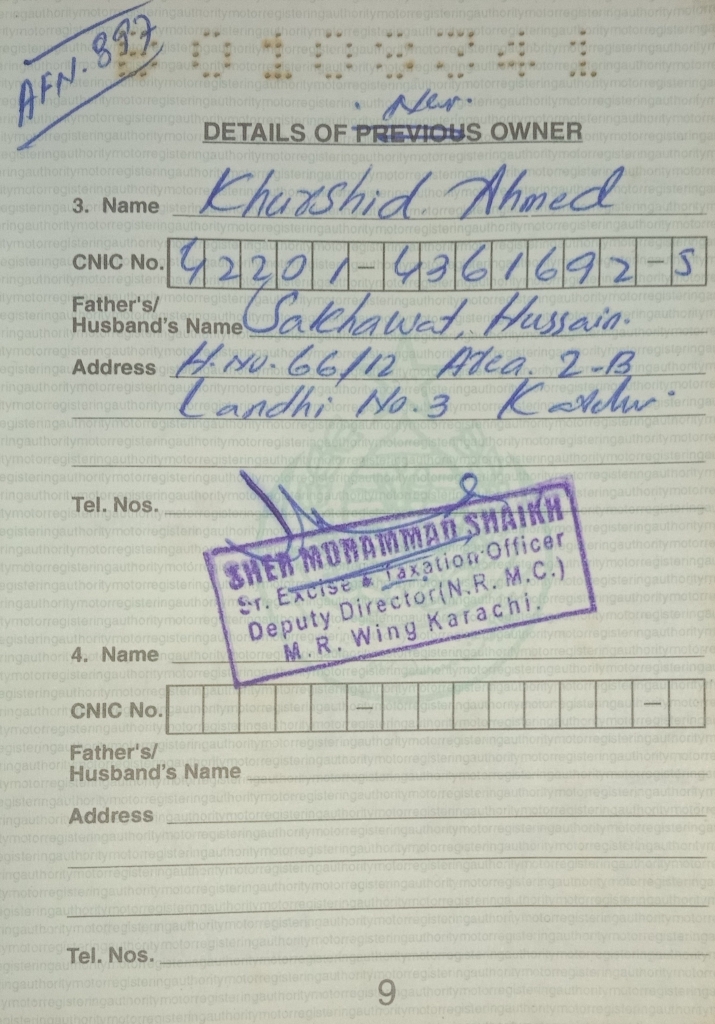 AFN. 897
New.
DETAILS OF PREVIOUS OWNER
3. Name Khurshid Ahmed
CNIC No. 42201-4361692-5
Father's/
Husband's Name Sakhawat Hussain.
Address H. No. 66/12 Area. 2-B
Landhi No. 3
Tel. Nos.
SHER MUHAMMAD SHAIKH
Sr. Excise & Taxation Officer
Deputy Director (N.R. M.C.)
M.R. Wing Karachi.
4. Name
CNIC No. - -
Father's/
Husband's Name
Address
Tel. Nos.
9